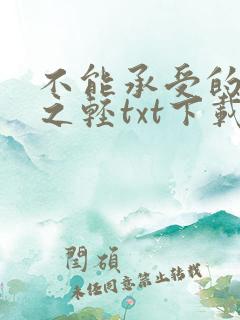 不能承受的
之轻txt下载
闫硕
未经同意禁止转载